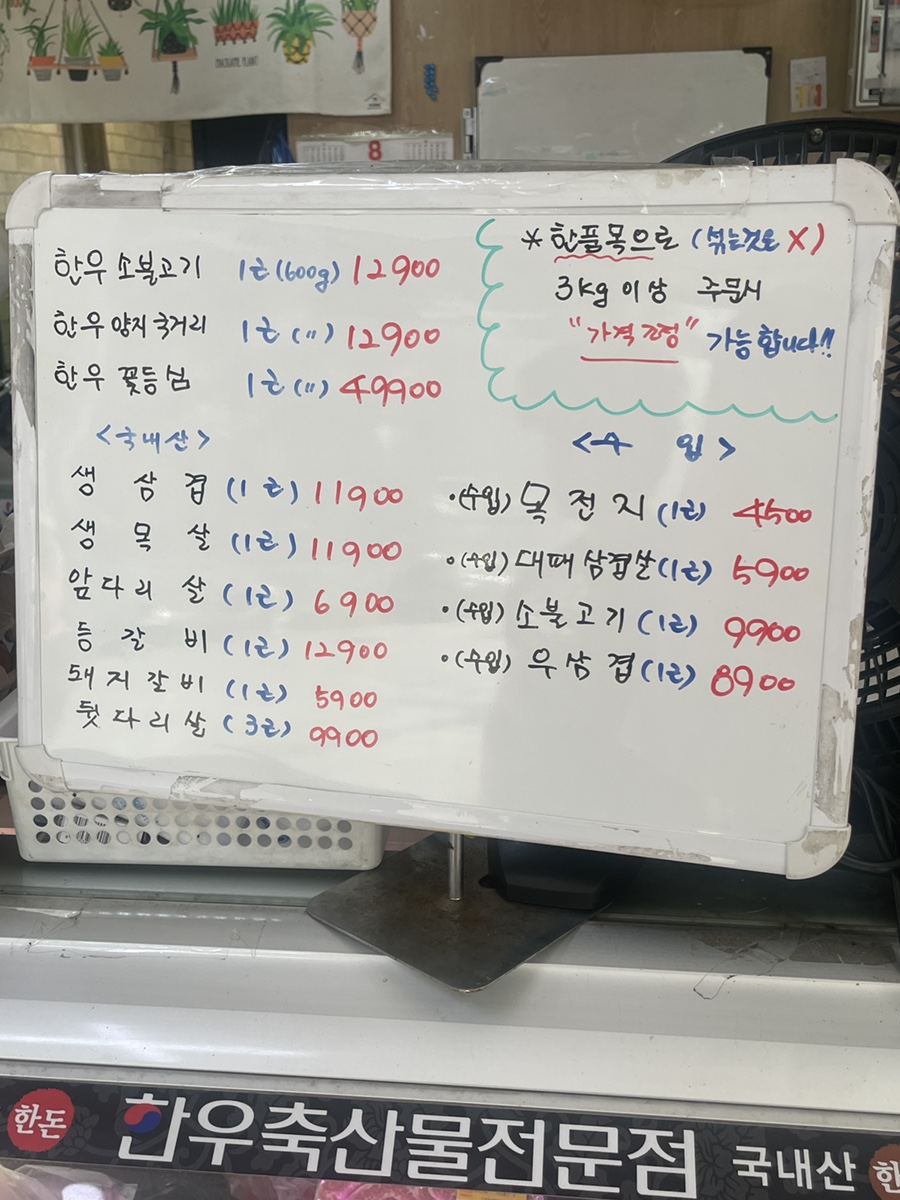 MACRAME PLANT
8
한우 소불고기 1근(600g) 12900
한우 양지 국거리 1근(〃) 12900
한우 꽃등심 1근(〃) 49900
* 한품목으로 (섞는것은 X)
3kg 이상 주문시
"가격조정" 가능합니다!!
<국내산>
생 삼 겹 (1근) 11900
생 목 살 (1근) 11900
앞다리 살 (1근) 6900
등 갈 비 (1근) 12900
돼지갈비 (1근) 5900
뒷다리살 (3근) 9900
<수 입>
·(수입) 목전지 (1근) 4500
·(수입) 대패삼겹살(1근) 5900
·(수입) 소불고기 (1근) 9900
·(수입) 우삼겹(1근) 8900
한돈 한우축산물전문점 국내산 한